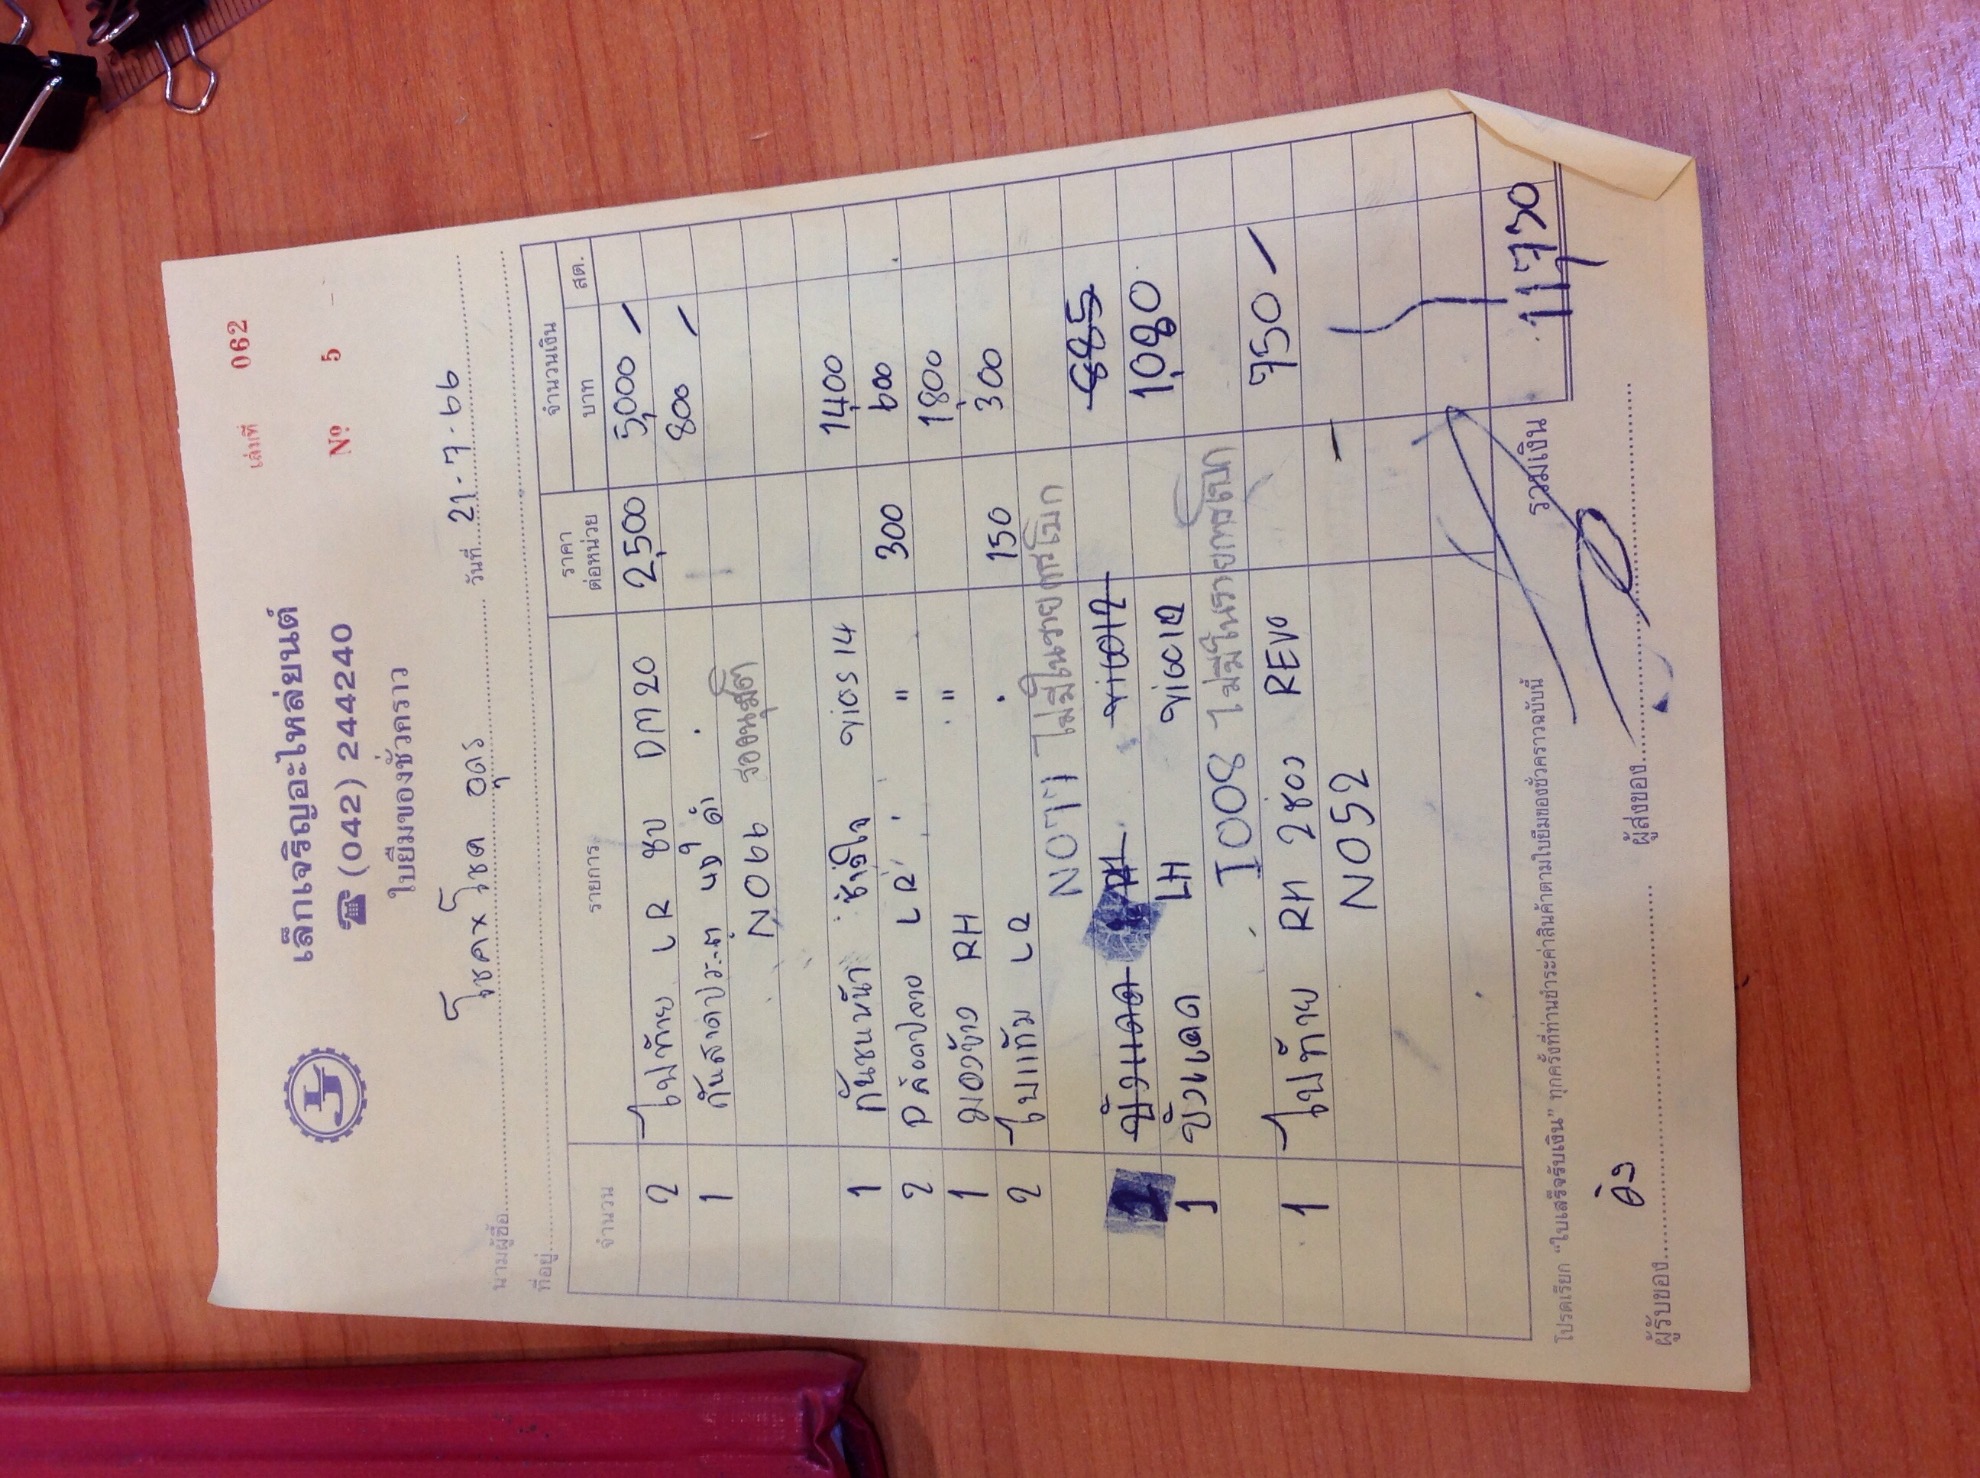 เล่มที่ 062
เล็กเจริญอะไหล่ยนต์
☎ (042) 244240
Nº 5
ใบยืมของชั่วคราว
นามผู้ซื้อ โชคxโชค อุดร วันที่ 21-7-66
ที่อยู่
จำนวน รายการ ราคาต่อหน่วย จำนวนเงิน บาท สต.
2 ไฟท้าย LR ชบ DM 20 2,500 5,000 -
1 กันสาดประตู ดำ 800 -
N066 รออนุมัติ
1 กันชนหน้า vios 14 1,400
2 LR " 300 600
1 มองข้าง RH " 1,800
2 ไฟแก้ม LR 150 300
N077 ไม่มีในรายการโบก
RH vigo12 885
1 LH vigo12 1,080
I008 ไม่มีในรายการโบก
1 ไฟท้าย RH 2ช่อง REVO 750 -
N052
รวมเงิน 11,730
โปรดเรียก "ใบเสร็จรับเงิน" ทุกครั้งที่ท่านชำระค่าสินค้าตามใบยืมของชั่วคราวฉบับนี้
ผู้รับของ ผู้ส่งของ